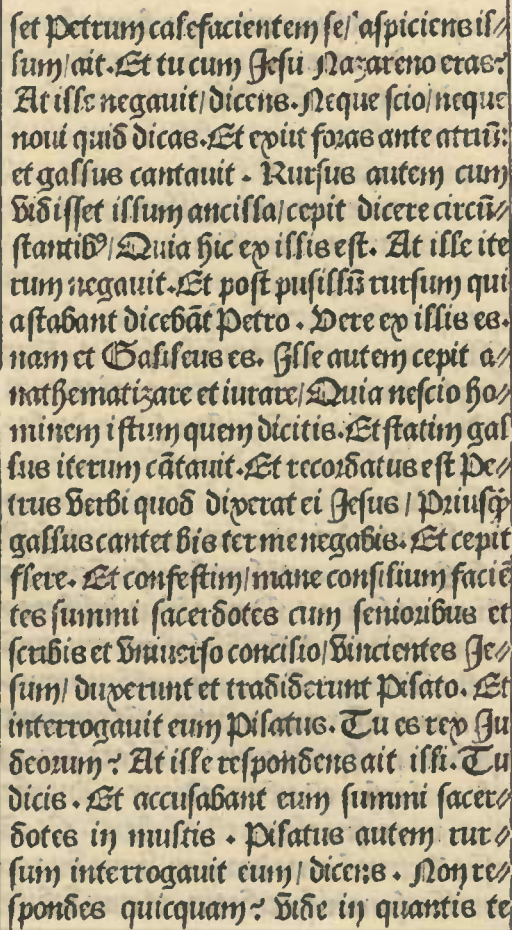 set Petrum calefacientem se/ aspiciens il⸗
lum/ ait. Et tu cum Jesu Nazareno eras?
At ille negauit/ dicens. Neque scio/ neque
noui quid dicas. Et exiit foras ante atriū:
et gallus cantauit. Rursus autem cum
vidisset illum ancilla/ cepit dicere circū⸗
stantibꝰ/ Quia hic ex illis est. At ille ite
rum negauit. Et post pusillū rursum qui
astabant dicebāt Petro. Vere ex illis es.
nam et Galileus es. Ille autem cepit a⸗
nathematizare et iurare/ Quia nescio ho⸗
minem istum quem dicitis. Et statim gal
lus iterum cātauit. Et recordatus est Pe⸗
trus verbi quod dixerat ei Jesus/ Priusꝙ̄
gallus cantet bis ter me negabis. Et cepit
flere. Et confestim/ mane consilium faciē
tes summi sacerdotes cum senioribus et
scribis et vniuerso concilio/ vincientes Je⸗
sum/ duxerunt et tradiderunt Pilato. Et
interrogauit eum Pilatus. Tu es rex Ju
deorum? At ille respondens ait illi. Tu
dicis. Et accusabant eum summi sacer⸗
dotes in multis. Pilatus autem rur⸗
sum interrogauit eum/ dicens. Non re⸗
spondes quicquam? vide in quantis te